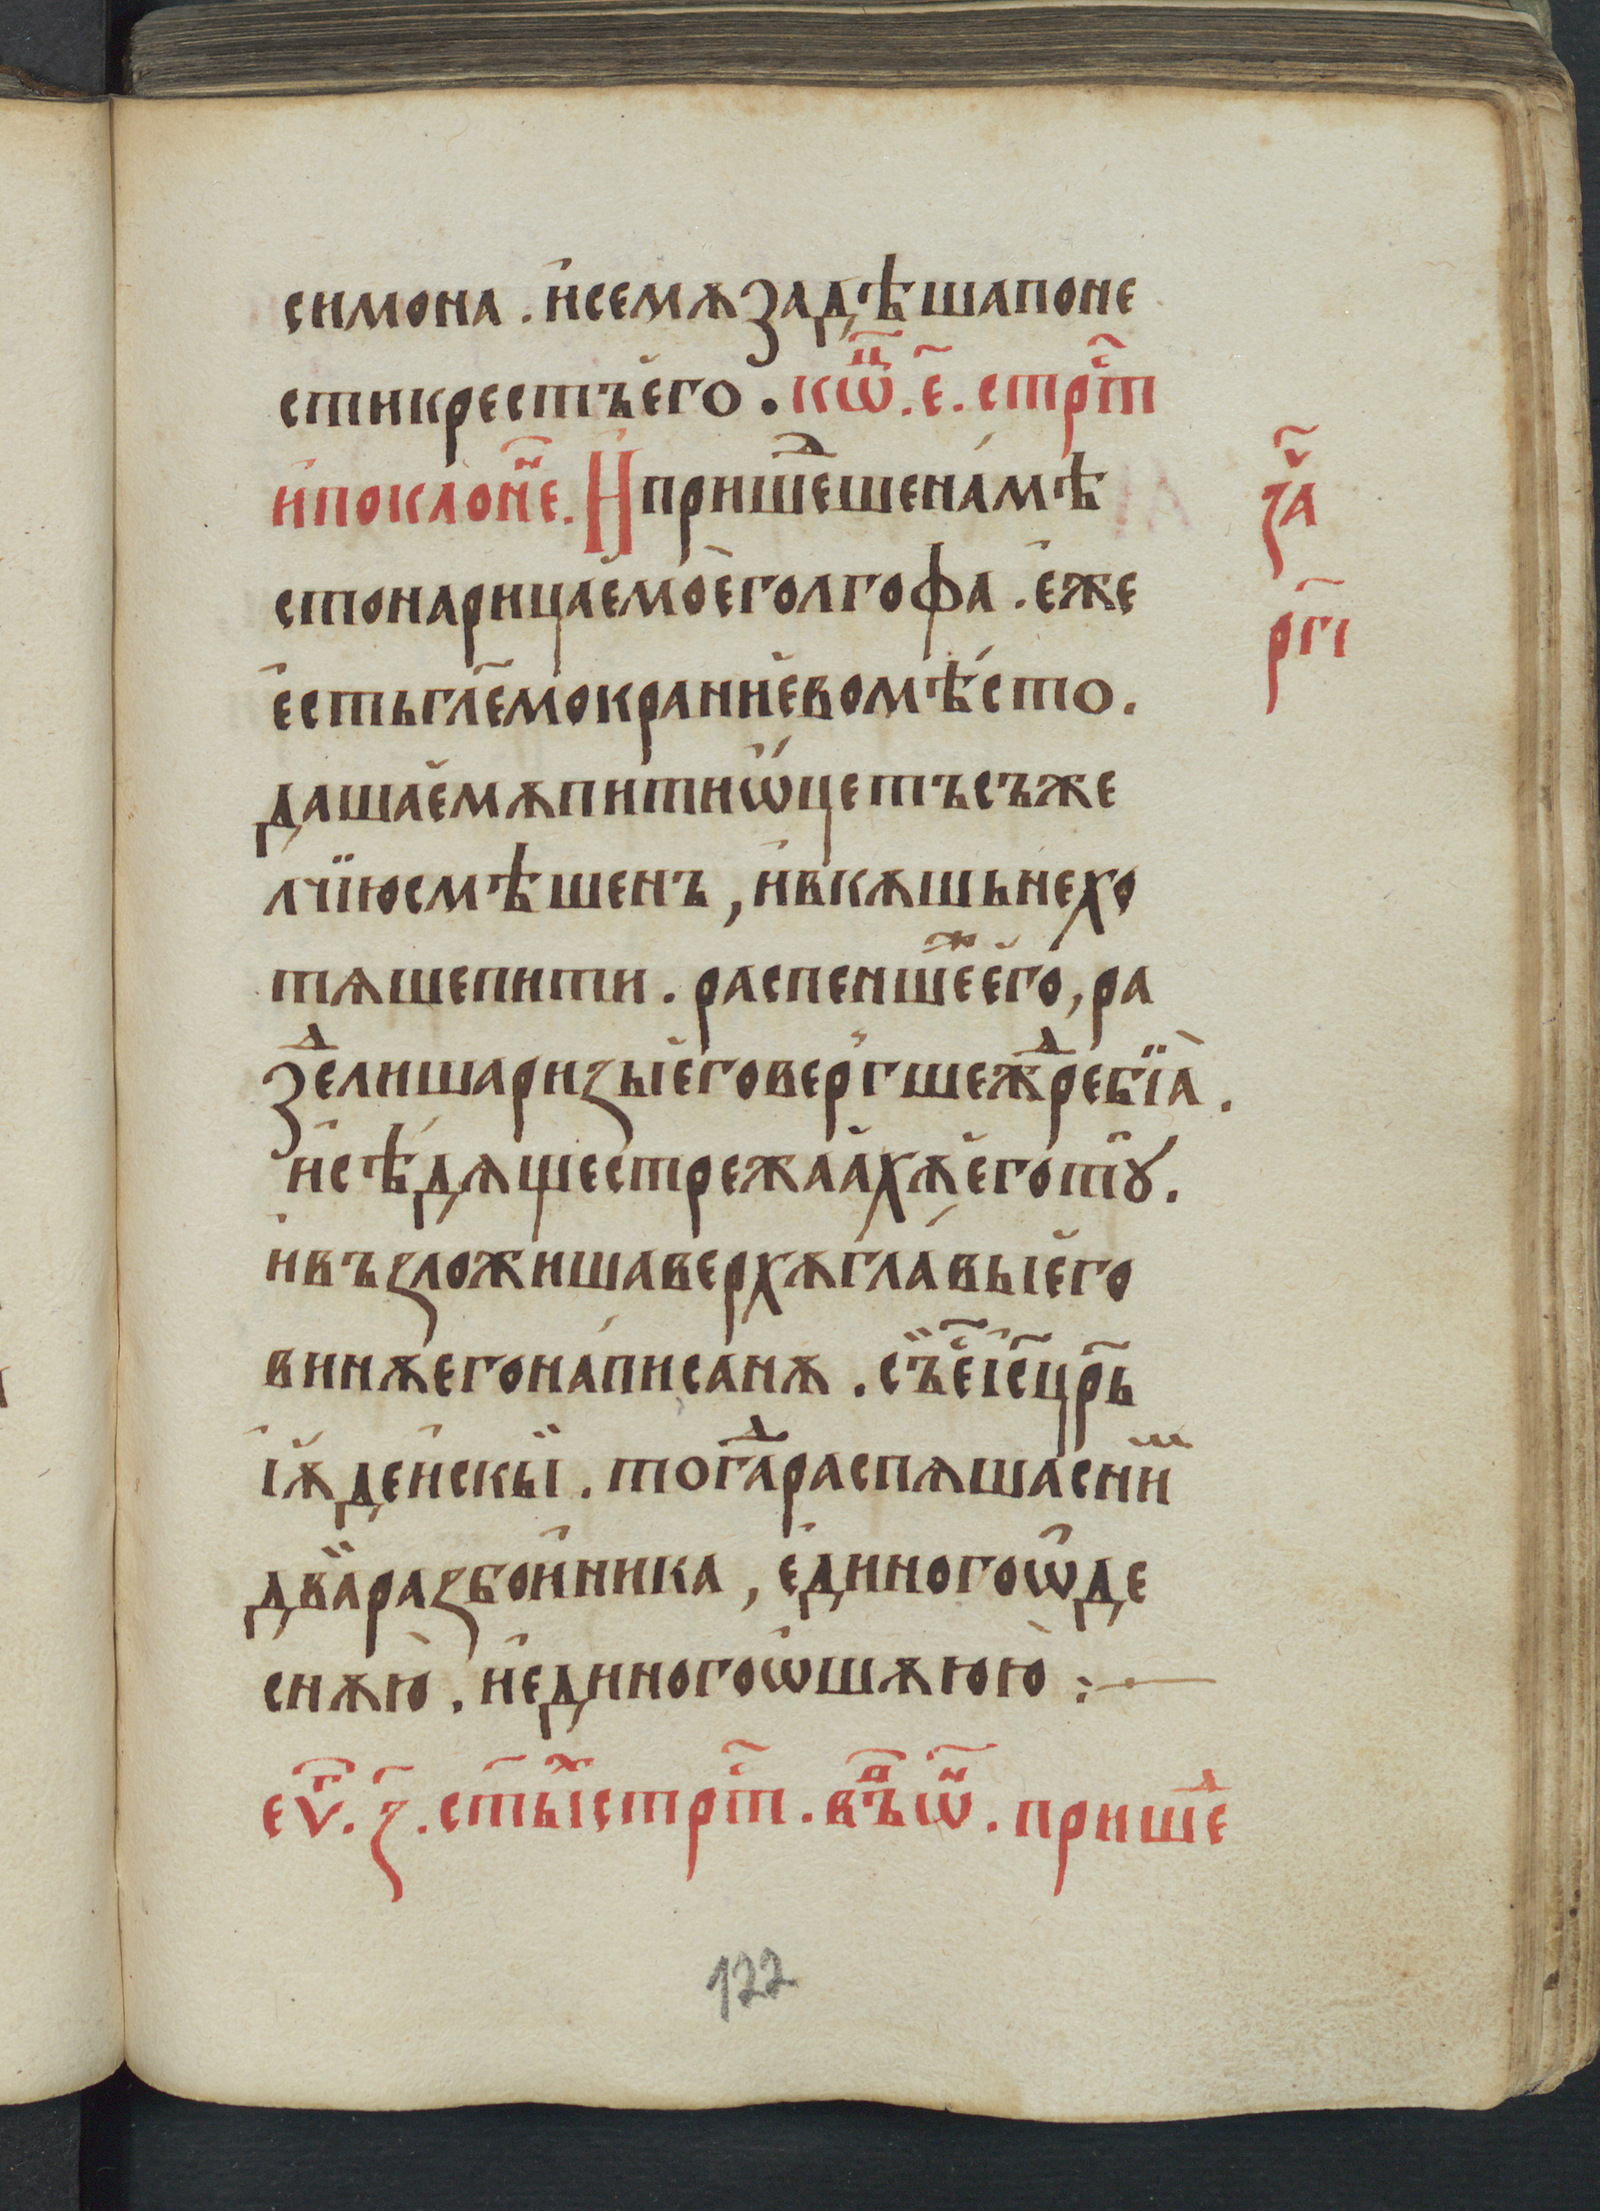 симона . и҆семѫзадѣшапоне
стикрестъе҆го . кѡ҃ⷰ . е҃ . стрⷭ҇т
и҆поклоне҃ⷩ . И҆прише́ⷣшенамѣ
стонарица́е҆мое҆голгоѳа . е҆же
е҆стьгл҃емокраниевомѣ́сто .
дашае҆мѫпитиѡ҆́цетъсъже
лчїюсмѣшенъ , и҆вкѫшьнехо
тѧшепити . распеншеⷤе҆го , ра
зⷣелишаризыегове́ргшежⷣребїѧ̀ .
и҆сѣ́дѧщестрежаа҆хѫе҆готꙋ̀ .
и҆възложишаверхѫглавы́е҆го
винѫегона́писанѫ . съ̏е҇і҆с҃цр҃ь
і҆ѫ҆деи҆скы̏ . тогⷣараспѧшасниⷨ
два̏разбои҆ника , е҆диногоѡ҆де
снѫю̀ . и҆е҆диногоѡ҆шѫюю̀ :—
еѵⷢ҇ . з҃ . ст҃ыⷯстрⷭ҇т . въⷣѡ҃ⷩ . пришеⷣ
заⷱ҇
рг҃і
122